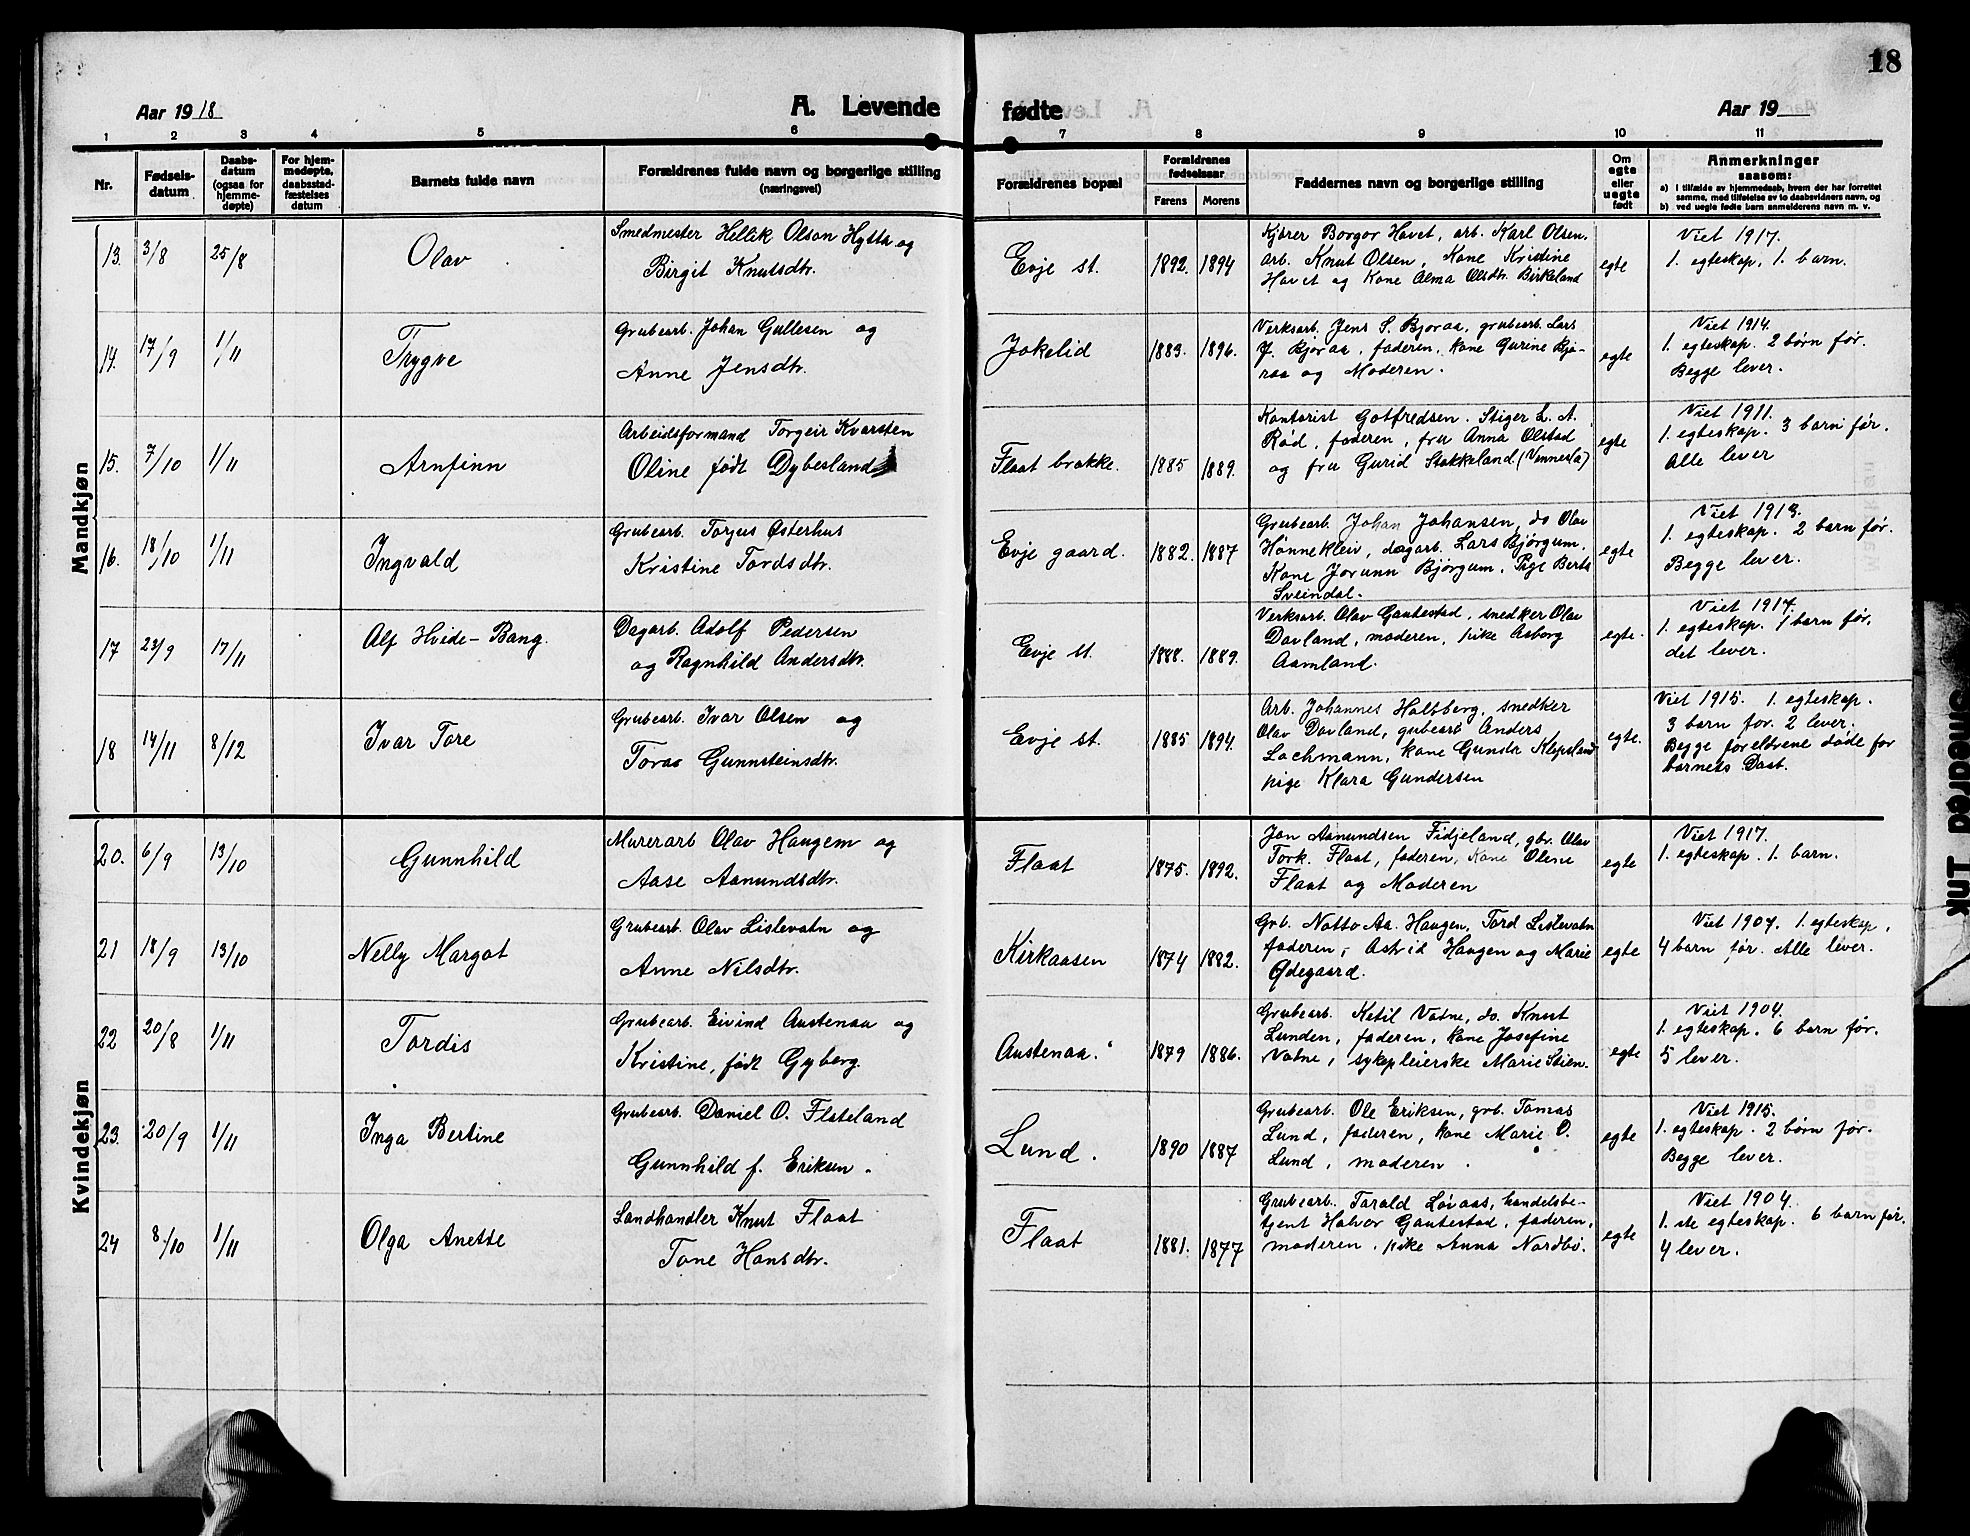 18
Aar 1918 A. Levende fødte Aar 19
1 2 3 4 5 6 7 8 9 10 11
Nr. Fødsels-datum Daabs-datum (ogsaa for hjemme-døpte) For hjem-medøpte, daabsstad-fæstelses datum Barnets fulde navn Forældrenes fulde navn og borgerlige stilling (næringsvei) Forældrenes bopæl Forældrenes fødselsaar Farens Morens Faddernes navn og borgerlige stilling Om egte eller uegte født Anmerkninger saasom:
a) i tilfælde av hjemmedaab, hvem der har forrettet samme, med tilføielse av to daabsvidners navn, og
b) ved uegte fødte barn anmelderens navn m. v.
Mandkjøn
13. 3/8 25/8 Olav
Smedmester Hellik Olson Hytta og
Birgit Knutsdtr.
Evje st. 1892. 1894
Kjører Borgor Hovet, arb. Karl Olsen,
arb. Knut Olsen, Kone Kristine
Hovet og Kone Alma Olsdtr. Birkeland
egte
Viet 1917.
1. egteskap, 1. barn.
14. 17/9 1/11 Trygve
Grubearb. Johan Gullesen og
Anne Jensdtr.
Jokelid 1883. 1896.
Verksarb. Jens S. Bjoraa, grubearb. Lars
J. Bjoraa, faderen, kone Gurine Bjo-
raa og Moderen.
egte
Viet 1914.
1. egteskap. 2 børn før.
Begge lever.
15. 7/10 1/11 Arnfinn
Arbeidsformand Torgeir Kvarsten
Oline født Dybesland
Flaat brakke. 1885 1889.
Kontorist Gotfredsen. Stiger L. A.
Rød, faderen, fru Anna Olstad
og fru Gurid Stokkeland (Vennesla)
egte
Viet 1911.
1. egteskap. 3 barn før.
Alle lever
16. 18/10 1/11 Ingvald
Grubearb. Torjus Østerhus
Kristine Tordsdtr.
Evje gaard. 1882. 1887
Grubearb. Johan Johansen, do Olav
Hønneklev, dagarb. Lars Bjørgum,
Kone Jorunn Bjørgum, Pige Berta
Sveindal.
egte
Viet 1913.
1. egteskap. 2 barn før.
Begge lever.
17 22/9 17/11 Alf Hvide-Bang.
Dagarb. Adolf Pedersen
og Ragnhild Andersdtr.
Evje st. 1888. 1889.
Verksarb. Olav Gautestad, snedker Olav
Dovland, moderen, pike Asborg
Aamland.
egte.
Viet 1917.
1. egteskap. 1 barn før,
det lever.
18 14/11 8/12 Ivar Tore
Grubearb. Ivar Olsen og
Toras Gunnsteinsdtr.
Evje st. 1885 1894.
Arb. Johannes Holtberg, snedker
Olav Dovland, gubearb Anders
Lochmann, kone Gunda Klepsland
pige Klara Gundersen
egte.
Viet 1915. 1. egteskap.
3 barn for. 2 lever.
Begge foreldrene døde for
barnets Daab.
Kvindekjøn
20. 6/9 13/10 Gunnhild
Murerarb Olav Haugem og
Aase Aanundsdtr.
Flaat 1875. 1892.
Jon Aanundsen Fidjeland, gbr. Olav
Tork. Flaat, faderen, Kone Olene
Flaat og Moderen
egte
Viet 1917.
1. egteskap. 1. barn.
21 18/9 13/10 Nelly Margot
Grubearb. Olav Lislevatn og
Anne Nilsdtr.
Kirkaasen 1874 1882.
Grb. Notto Aa. Haugen, Tord Lislevatn
faderen, Astrid Haugen og Marie
Ødegaard.
egte
Viet 1907. 1. egteskap,
4 barn før. Alle lever.
22 20/8 1/11 Tordis
Grubearb. Eivind Austenaa og
Kristine, født Gyberg.
Austenaa. 1879 1886.
Grubearb. Ketil Vatne, do. Knut
Lunden, faderen, kone Josefine
Vatne, sykepleierske Marie Stien.
egte
Viet 1904.
1. egteskap. 6 barn før.
5 lever.
23. 20/9 1/11 Inga Bertine
Grubearb. Daniel O. Flateland
Gunnhild f. Eriksen.
Lund. 1890 1887
Grubearb. Ole Eriksen, grb. Tomas
Lund, faderen, kone Marie O.
Lund, moderen.
egte
Viet 1915.
1. egteskap. 2 børn før.
Begge lever.
24 8/10 1/11 Olga Anette
Landhandler Knut Flaat
Tone Hansdtr.
Flaat 1881. 1877
Grubearb. Tarald Løvaas, handelsbe-
tjent Halvor Gautestad, faderen,
moderen, pike Anna Nordbø.
egte
Viet 1904.
1. ste egteskap. 6 barn før.
4 lever.